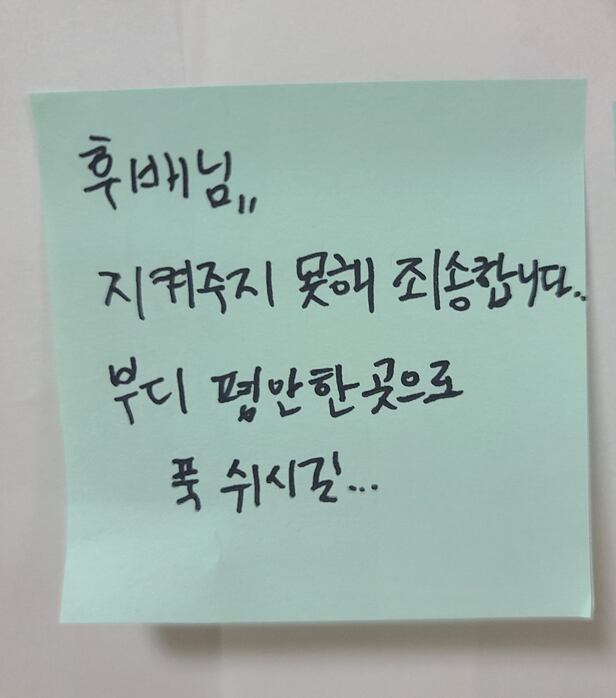 후배님,,
지켜주지 못해 죄송합니다..
부디 평안한 곳으로
푹 쉬시길...